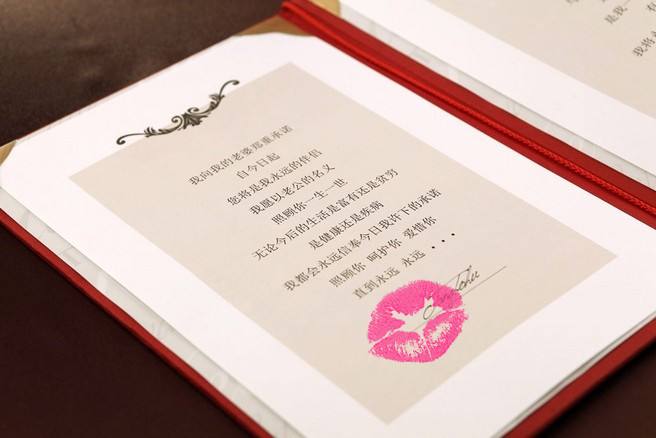 我向我的老婆郑重承诺
自今日起
您将是我永远的伴侣
我愿以老公的名义
照顾你一生一世
无论今后的生活是富有还是贫穷
是健康还是疾病
我都会永远信奉今日我许下的承诺
照顾你 呵护你 爱惜你
直到永远 永远 • • •
是我一
我将